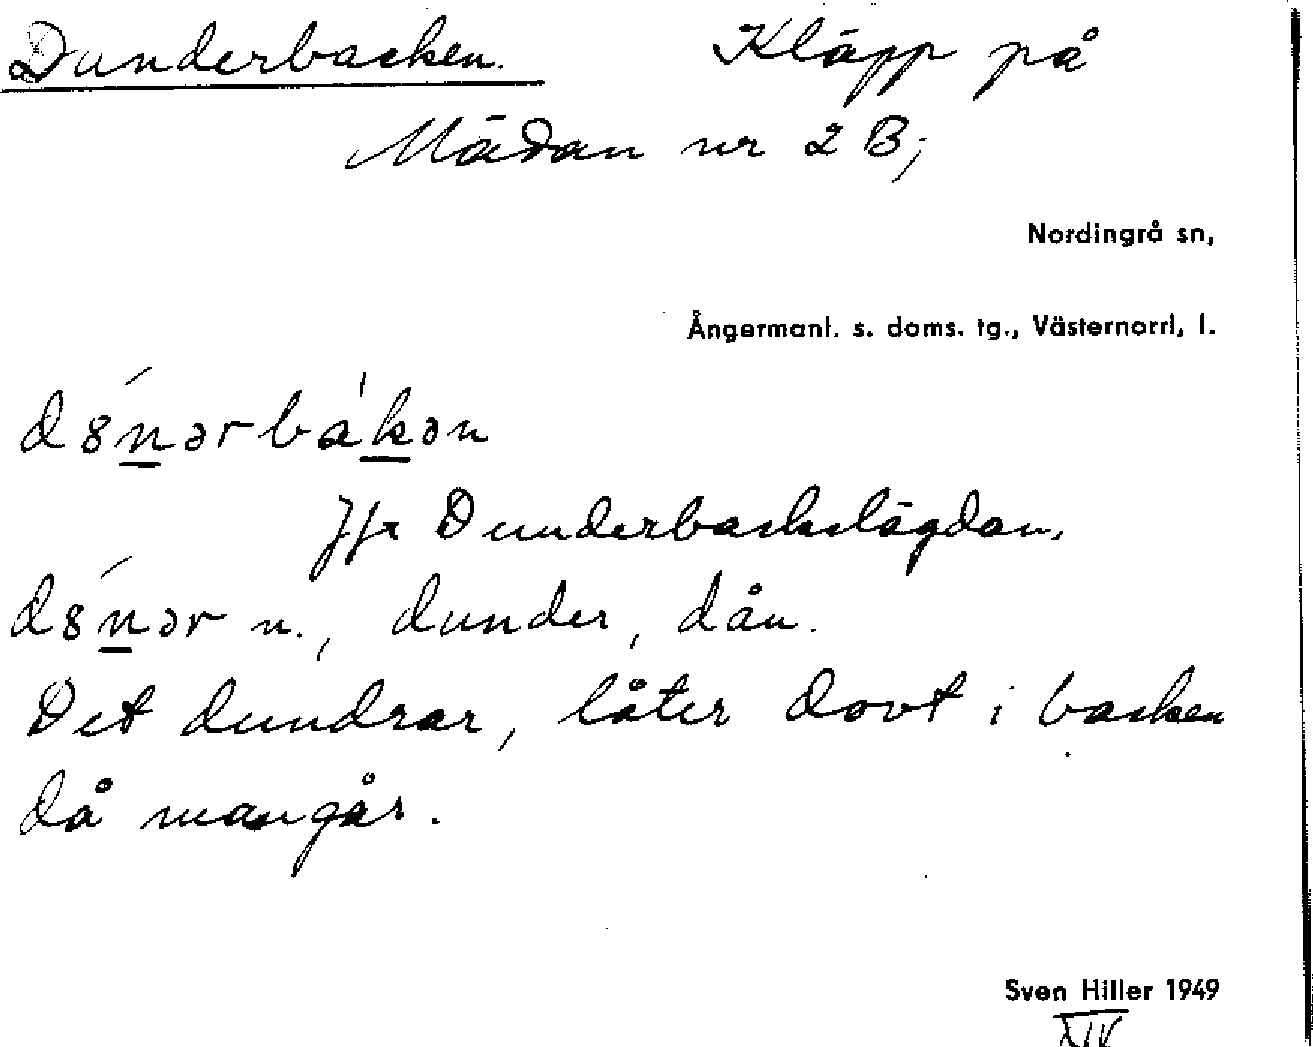 Dunderbacken. Kläpp på
Mädan nr 2 B;
Nordingrå sn,
Ångermanl. s. doms. tg., Västernorrl. l.
d8́nərbàkən
Jfr Dunderbackslägdan.
d8́nər n., dunder, dån.
Det dundrar, låter dovt i backen
då man går.
Sven Hiller 1949
XIV